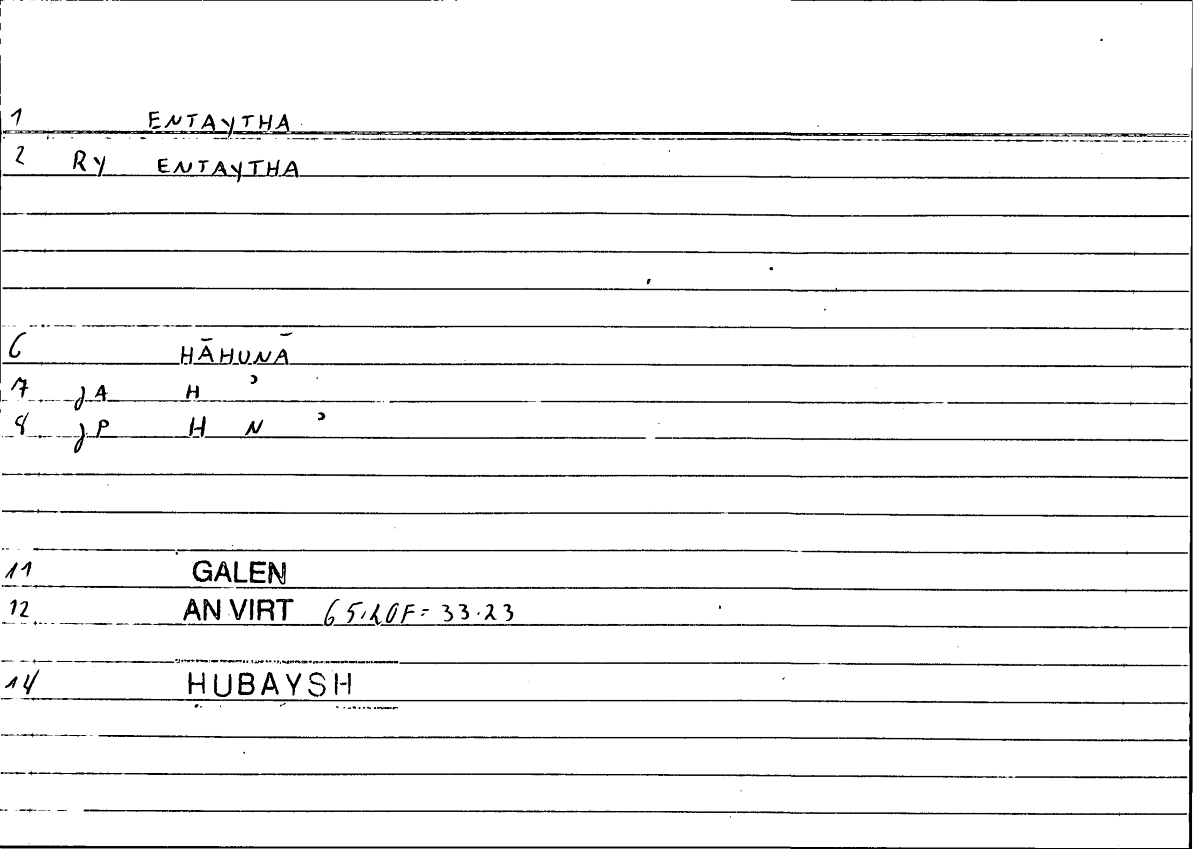 1 ENTAYTHA
2 Ry ENTAYTHA
6 HĀHUNĀ
7 jA H ʾ
8 jP H N ʾ
11 GALEN
12 AN VIRT 65.20F= 33.23
14 HUBAYSH